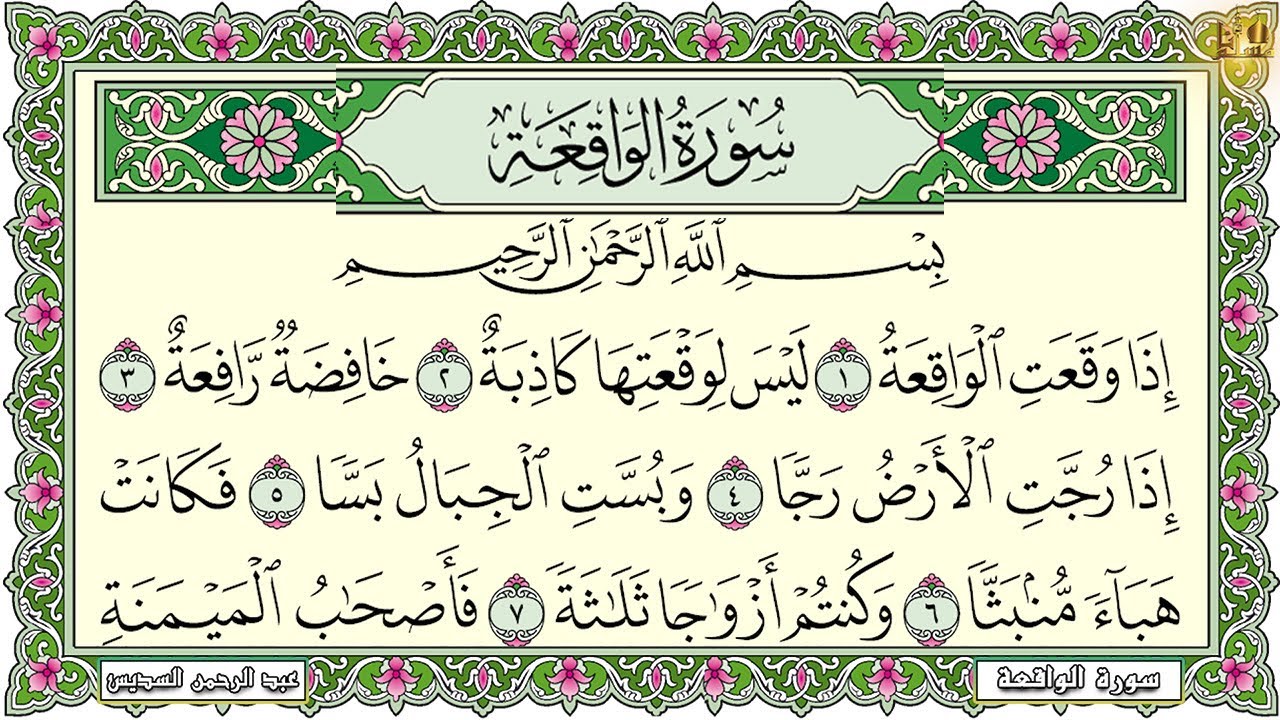 سُورَةُ الْوَاقِعَةِ
بِسْمِ ٱللَّهِ ٱلرَّحْمَٰنِ ٱلرَّحِيمِ
إِذَا وَقَعَتِ ٱلْوَاقِعَةُ ١ لَيْسَ لِوَقْعَتِهَا كَاذِبَةٌ ٢ خَافِضَةٌ رَّافِعَةٌ ٣
إِذَا رُجَّتِ ٱلْأَرْضُ رَجًّا ٤ وَبُسَّتِ ٱلْجِبَالُ بَسًّا ٥ فَكَانَتْ
هَبَآءً مُّنۢبَثًّا ٦ وَكُنتُمْ أَزْوَٰجًا ثَلَٰثَةً ٧ فَأَصْحَٰبُ ٱلْمَيْمَنَةِ
سورة الواقعة
عبد الرحمن السديس